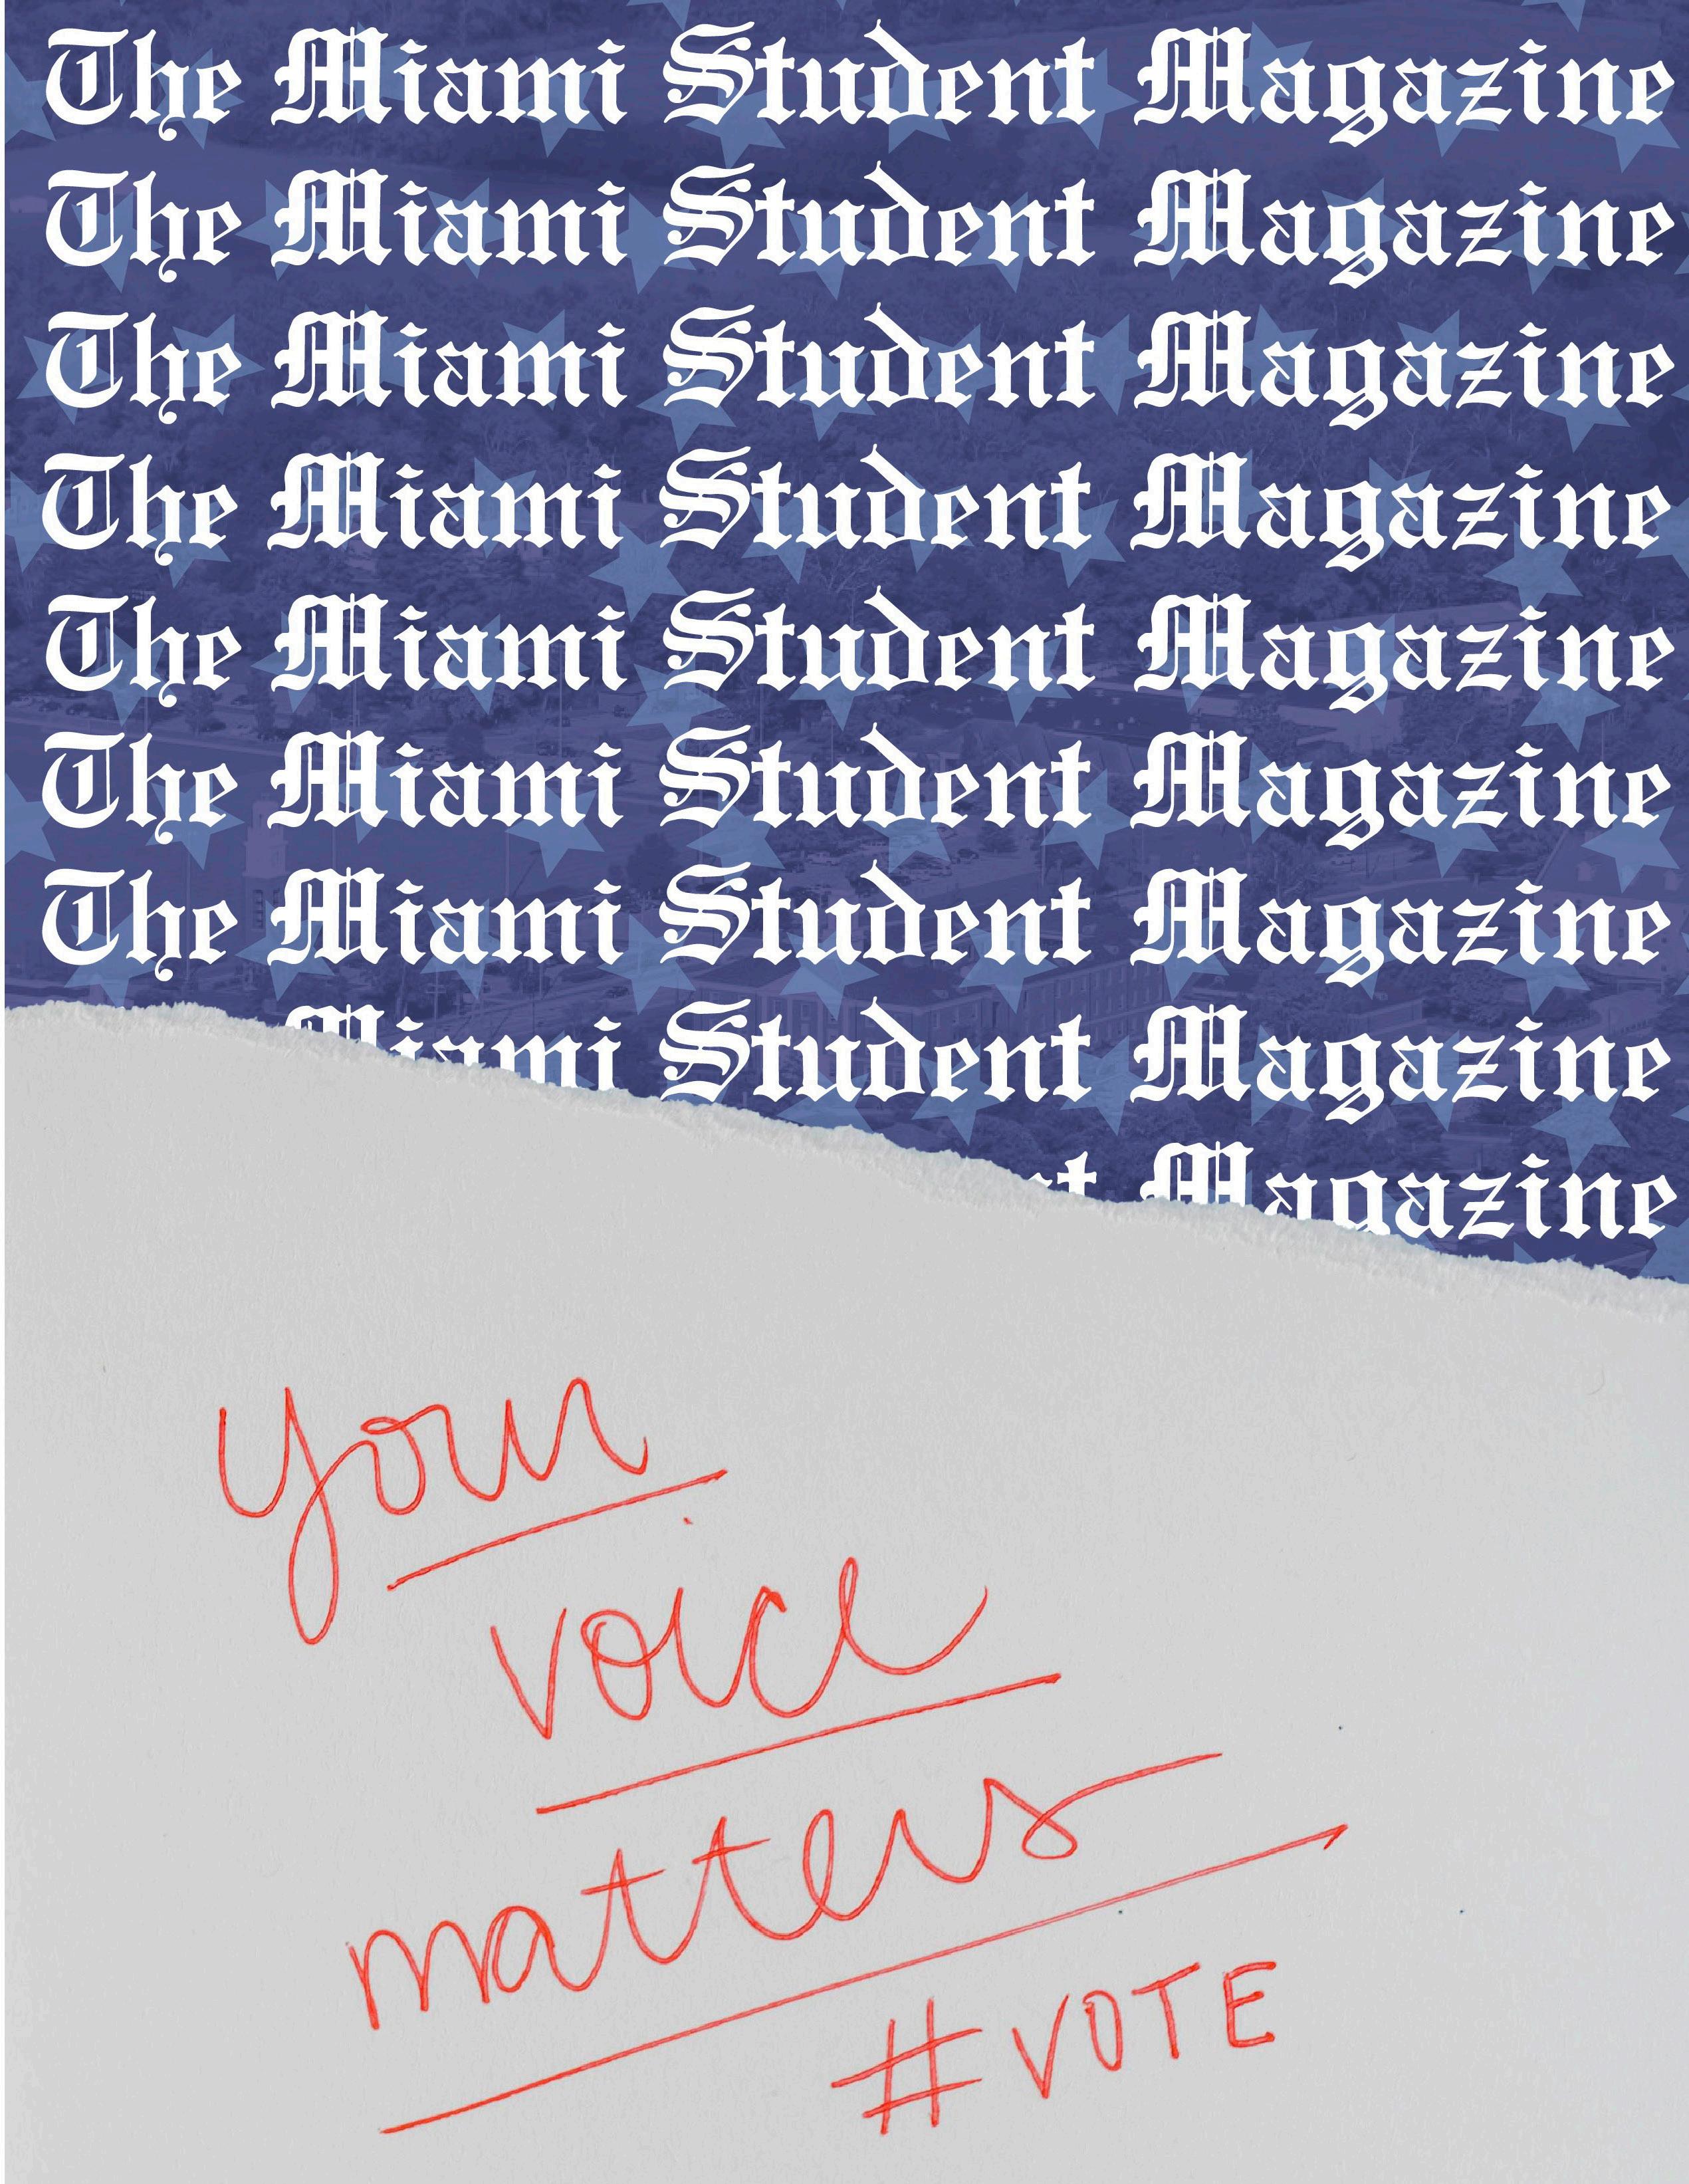 The Miami Student Magazine
The Miami Student Magazine
The Miami Student Magazine
The Miami Student Magazine
The Miami Student Magazine
The Miami Student Magazine
The Miami Student Magazine
Miami Student Magazine
Magazine
your
voice
matters
#VOTE